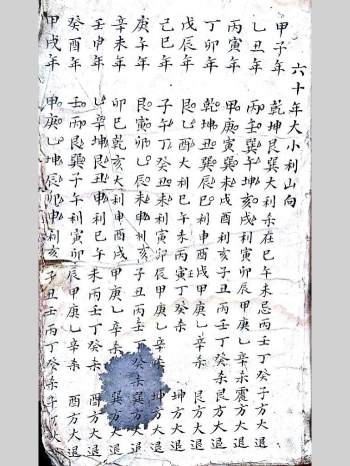 六十年大小利山向
甲子年 乾坤艮巽大利 在巳午未忌丙壬丁癸子方大退
乙丑年 丙壬午坤亥利寅卯辰甲庚乙辛杀震方大退
丙寅年 甲庚寅巽未戌酉利亥子丑丙壬丁癸杀艮方大退
丁卯年 乾坤丑巽辰巳利申酉戌甲庚乙辛杀 艮方大退
戊辰年 乙丁癸大利巳午未丙壬丁癸杀 坤方大退
己巳年 子午丁癸丑未利寅卯辰甲庚乙辛杀 坤方大退
庚午年 艮寅卯乙辰巳未利亥子丑丙壬丁癸杀巽方大退
辛未年 卯巳乾亥大利申酉戌甲庚乙辛杀 巽方大退
壬申年 乙辛坤艮丑申利巳午未丙壬丁癸杀 酉方大退
癸酉年 壬丙艮巽子午利寅卯辰甲庚乙辛杀 酉方大退
甲戌年 甲庚乙坤辰卯申利亥子丑壬丙丁癸杀 大退